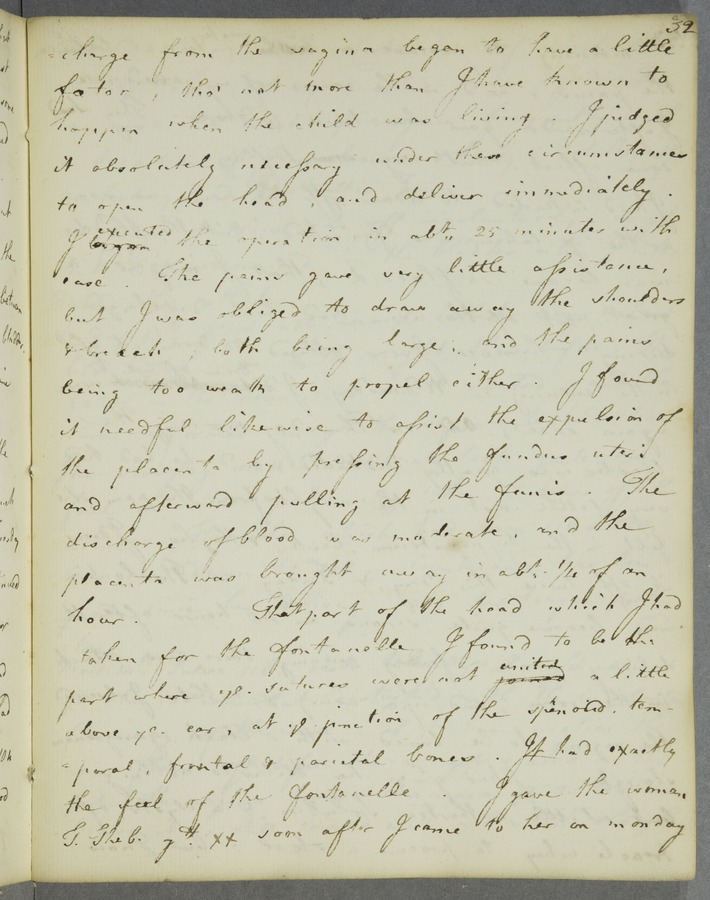 32
=charge from the vagina began to have a little
fœtor, tho' not more than I have known to
happen when the child was living. I judged
it absolutely necessary under these circumstances
to open the head, and deliver immediately.
I executed the operation in abt. 25 minutes with
ease. The pains gave very little assistance,
but I was obliged to draw away the shoulders
& breech, both being large, and the pains
being too weak to propel either. I found
it needful likewise to assist the expulsion of
the placenta by pressing the fundus uteri
and afterward pulling at the funis. The
discharge of blood was moderate, and the
placenta was brought away in abt. 1/4 of an
hour. That part of the head which I had
taken for the fontanelle I found to be the
part where ye. sutures were not united joined a little
above ye. ear, at ye junction of the sphenoid. tem-
=poral, frontal & parietal bones. It had exactly
the feel of the fontanelle. I gave the woman
T. Theb. gtt. xx soon after I came to her on monday